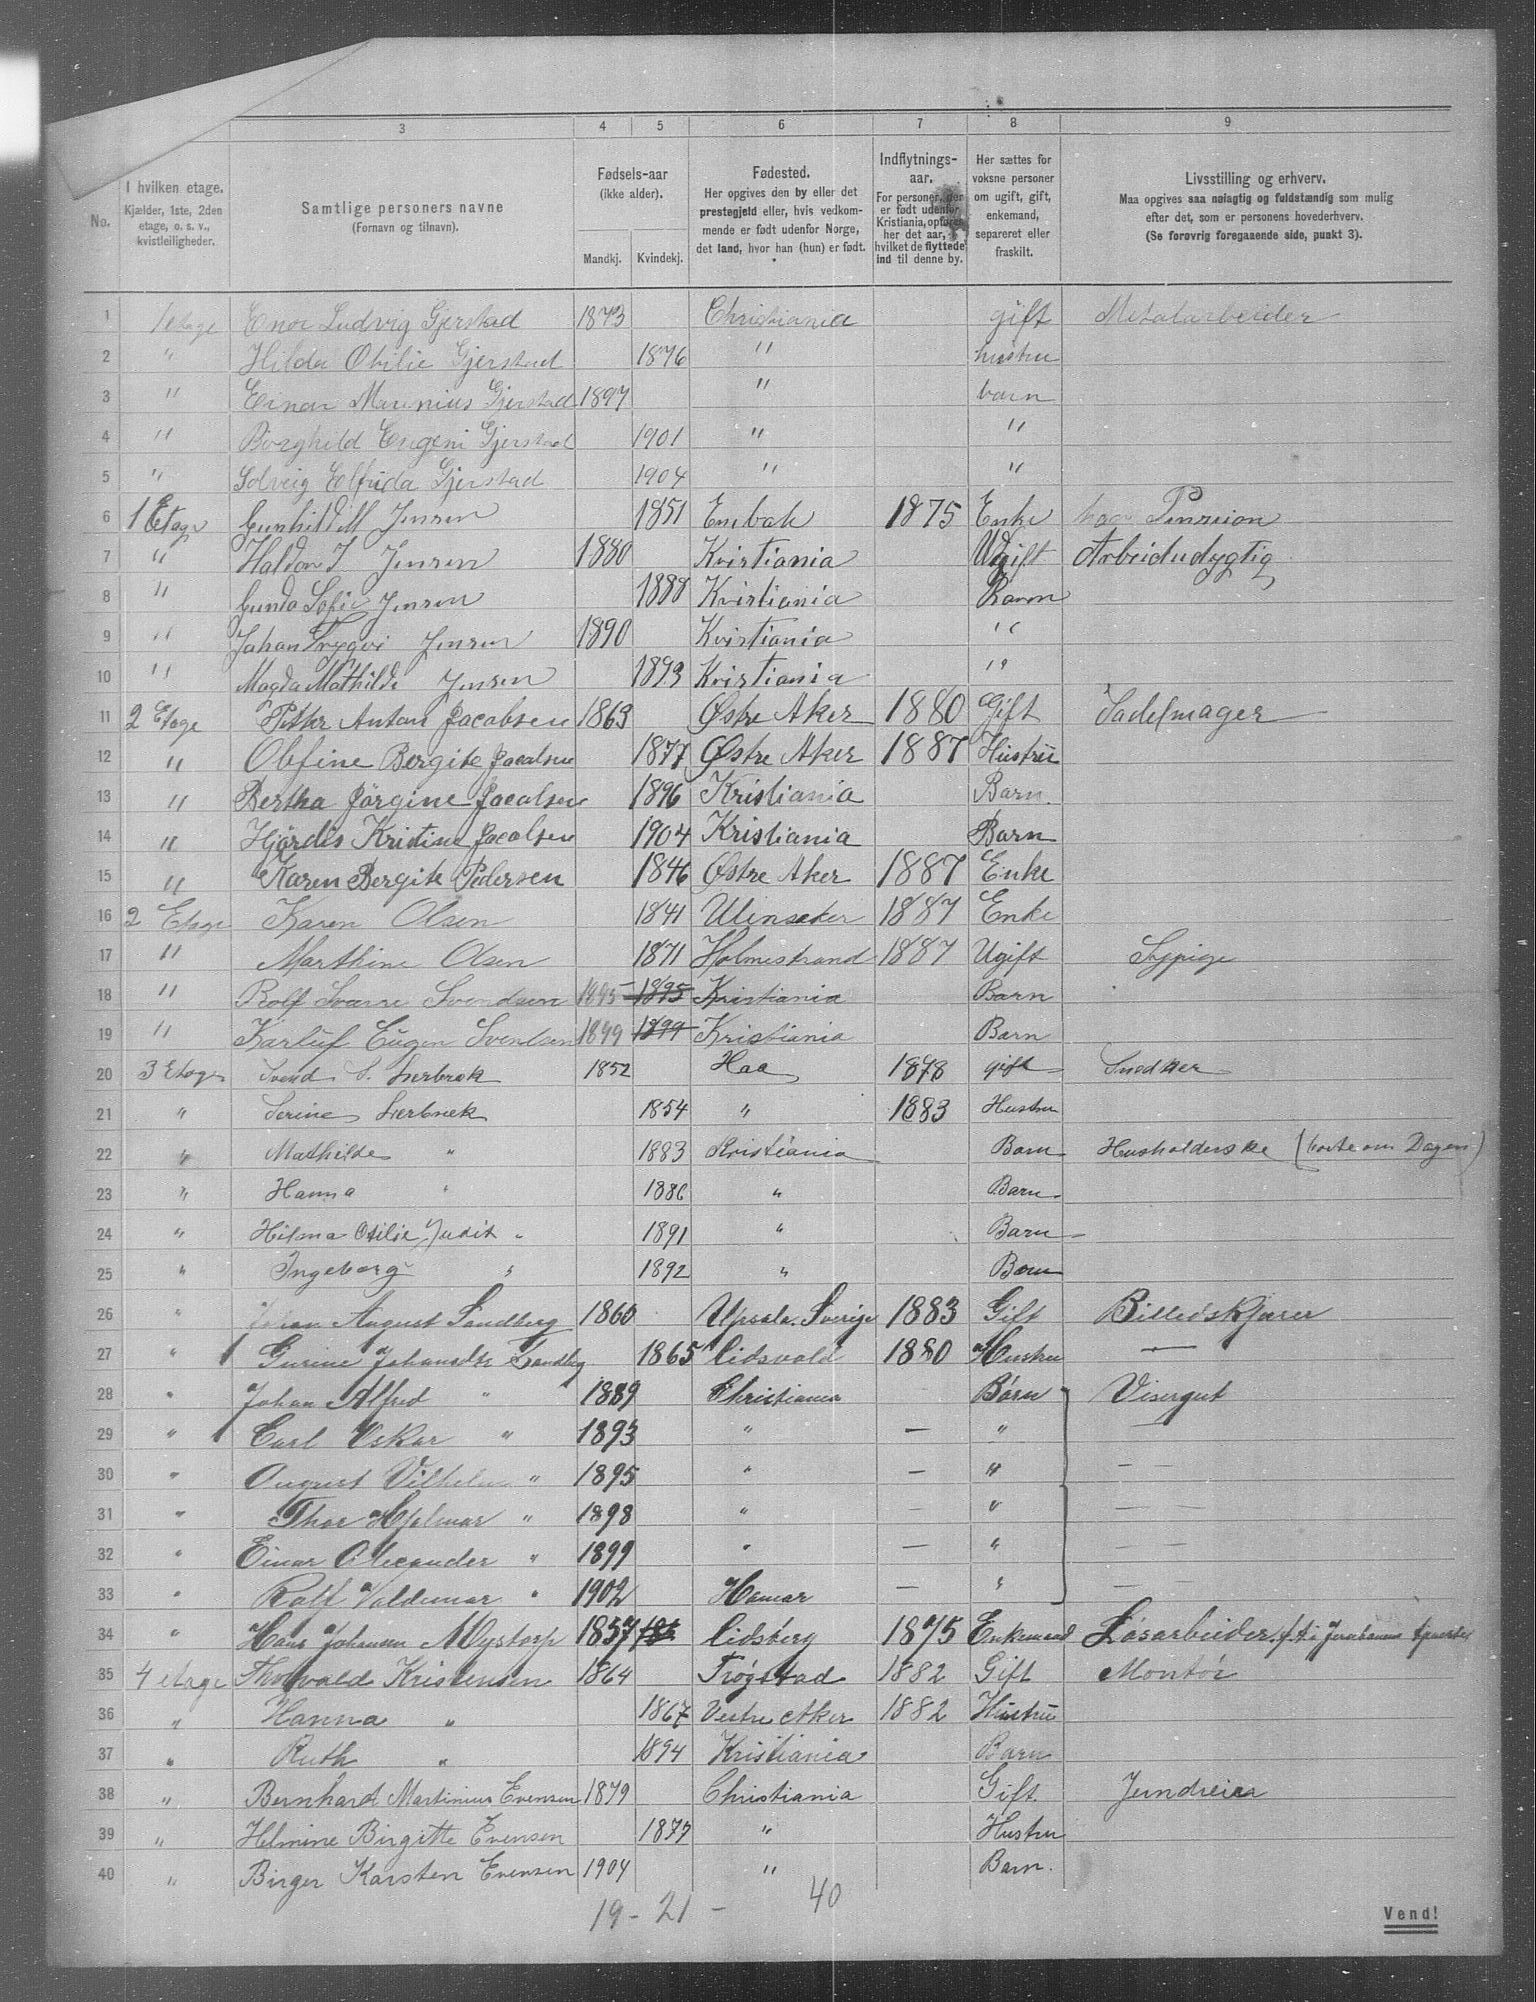 3 4 5 6 7 8 9
No.
I hvilken etage.
Kjælder, 1ste, 2den
etage, o. s. v.,
kvistleiligheder.
Samtlige personers navne
(Fornavn og tilnavn).
Fødsels-aar
(ikke alder).
Mandkj. Kvindekj.
Fødested.
Her opgives den by eller det
prestegjeld eller, hvis vedkom-
mende er født udenfor Norge,
det land, hvor han (hun) er født.
Indflytnings-
aar.
For personer, der
er født udenfor
Kristiania, opføres
her det aar,
hvilket de flyttede
ind til denne by.
Her sættes for
voksne personer
om ugift, gift,
enkemand,
separeret eller
fraskilt.
Livsstilling og erhverv.
Maa opgives saa nøiagtig og fuldstændig som mulig
efter det, som er personens hovederhverv.
(Se forøvrig foregaaende side, punkt 3).
1 1 etage Enor Ludvig Gjerstad 1873 Christiania gift Metalarbeider
2 " Hilda Otilie Gjerstad 1876 " hustru
3 " Einar Marinius Gjerstad 1897 " barn
4 " Borghild Eugeni Gjerstad 1901 " "
5 " Solveig Elfrida Gjerstad 1904 " "
6 1 Etage Gunhild M Jensen 1851 Enebak 1875 Enke har Pension
7 " Haldon J Jensen 1880 Kristiania Ugift Arbeidudygtig
8 " Gunda Sofie Jensen 1888 Kristiania Barn
9 " Johan Trygvi Jensen 1890 Kristiania "
10 " Magda Mathilde Jensen 1893 Kristiania "
11 2 Etage Pether Anton Jacobsen 1863 Østre Aker 1880 Gift Sadelmager
12 " Olefine Bergite Jacobsen 1877 Østre Aker 1887 Hustru
13 " Bertha Jørgine Jacobsen 1896 Kristiania Barn.
14 " Hjördis Kristine Jacobsen 1904 Kristiania Barn
15 " Karen Bergite Pedersen 1846 Østre Aker 1887 Enke
16 2 Etage Karen Olsen 1841 Ulinsaker 1887 Enke
17 " Marthine Olsen 1871 Holmestrand 1887 Ugift Sypige
18 " Rolf Svarre Svendsen 1895 1895 Kristiania Barn
19 " Karluf Eugen Svendsen 1899 1899 Kristiania Barn
20 3 Etage Svend S. Lierbræk 1852 Haa 1878 gift Snedker
21 " Serine Lierbræk 1854 " 1883 Hustru
22 " Mathilde " 1883 Kristiania Barn Husholderske (borte om Dagen)
23 " Hanna " 1886 " Barn
24 " Hilma Otilie Judit " 1891 " Barn
25 " Ingeborg " 1892 " Barn
26 " Johan August Sandberg 1860 Upsala. Sverige 1883 Gift Billedskjærer
27 " Gurine Johansdtr Sandberg 1865 Eidsvold 1880 Hustru —
28 " Johan Alfred " 1889 Christiania Børn Visergut
29 " Carl Oskar " 1893 " — " —
30 " August Vilhelm " 1895 " — " — —
31 " Thor Hjalmar " 1898 " — " — —
32 " Einar Alexander " 1899 " — " — —
33 " Rolf Valdemar " 1902 Hamar — " — —
34 " Hans Johansen Mystorp 1857 Eidsberg 1875 Enkemand Løsarbeider
35 4 etage Thorvald Kristensen 1864 Trøgstad 1882 Gift Montør
36 " Hanna " 1867 Vestre Aker 1882 Hustru
37 " Ruth " 1894 Kristiania Barn
38 " Bernhard Martinius Evensen 1879 Christiania Gift.
39 " Helmine Birgitte Evensen 1877 " Hustru
40 " Birger Karsten Evensen 1904 " Barn.
19 - 21 - 40
Vend!